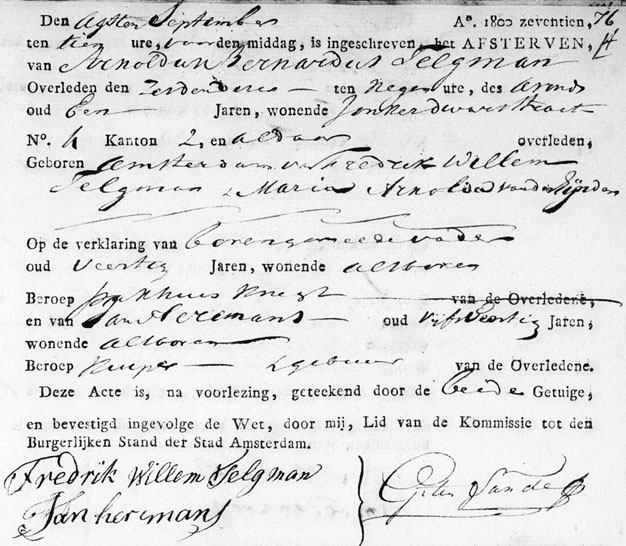 Den Agsten September Ao. 1800 zeventien, 76
ten tien ure, voor den middag, is ingeschreven, het AFSTERVEN, 4
van Arnoldus Bernardus Telgman
Overleden den Zesden dezes ten negen ure, des avonds
oud Een Jaren, wonende Jonkerdwarsstraat
No. 4 Kanton 2, en aldaar overleden,
Geboren Amsterdam van Fredrik Willem
Telgman & Maria Arnolda van der
Op de verklaring van bovengemeede vader
oud Veertig Jaren, wonende als boven
Beroep pakhuis knegt van de Overledene,
en van Jan Hermans oud vijf Veertig Jaren,
wonende als boven
Beroep Kuiper gebuur van de Overledene.
Deze Acte is, na voorlezing, geteekend door de beide Getuige,
en bevestigd ingevolge de Wet, door mij, Lid van de Kommissie tot den
Burgerlijken Stand der Stad Amsterdam.
Fredrik Willem Telgman
Jan hermans